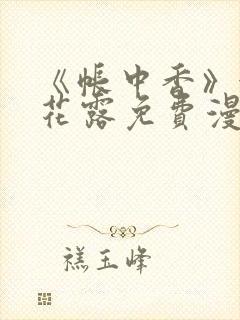 《帐中香》
花露免费漫
糕玉峰